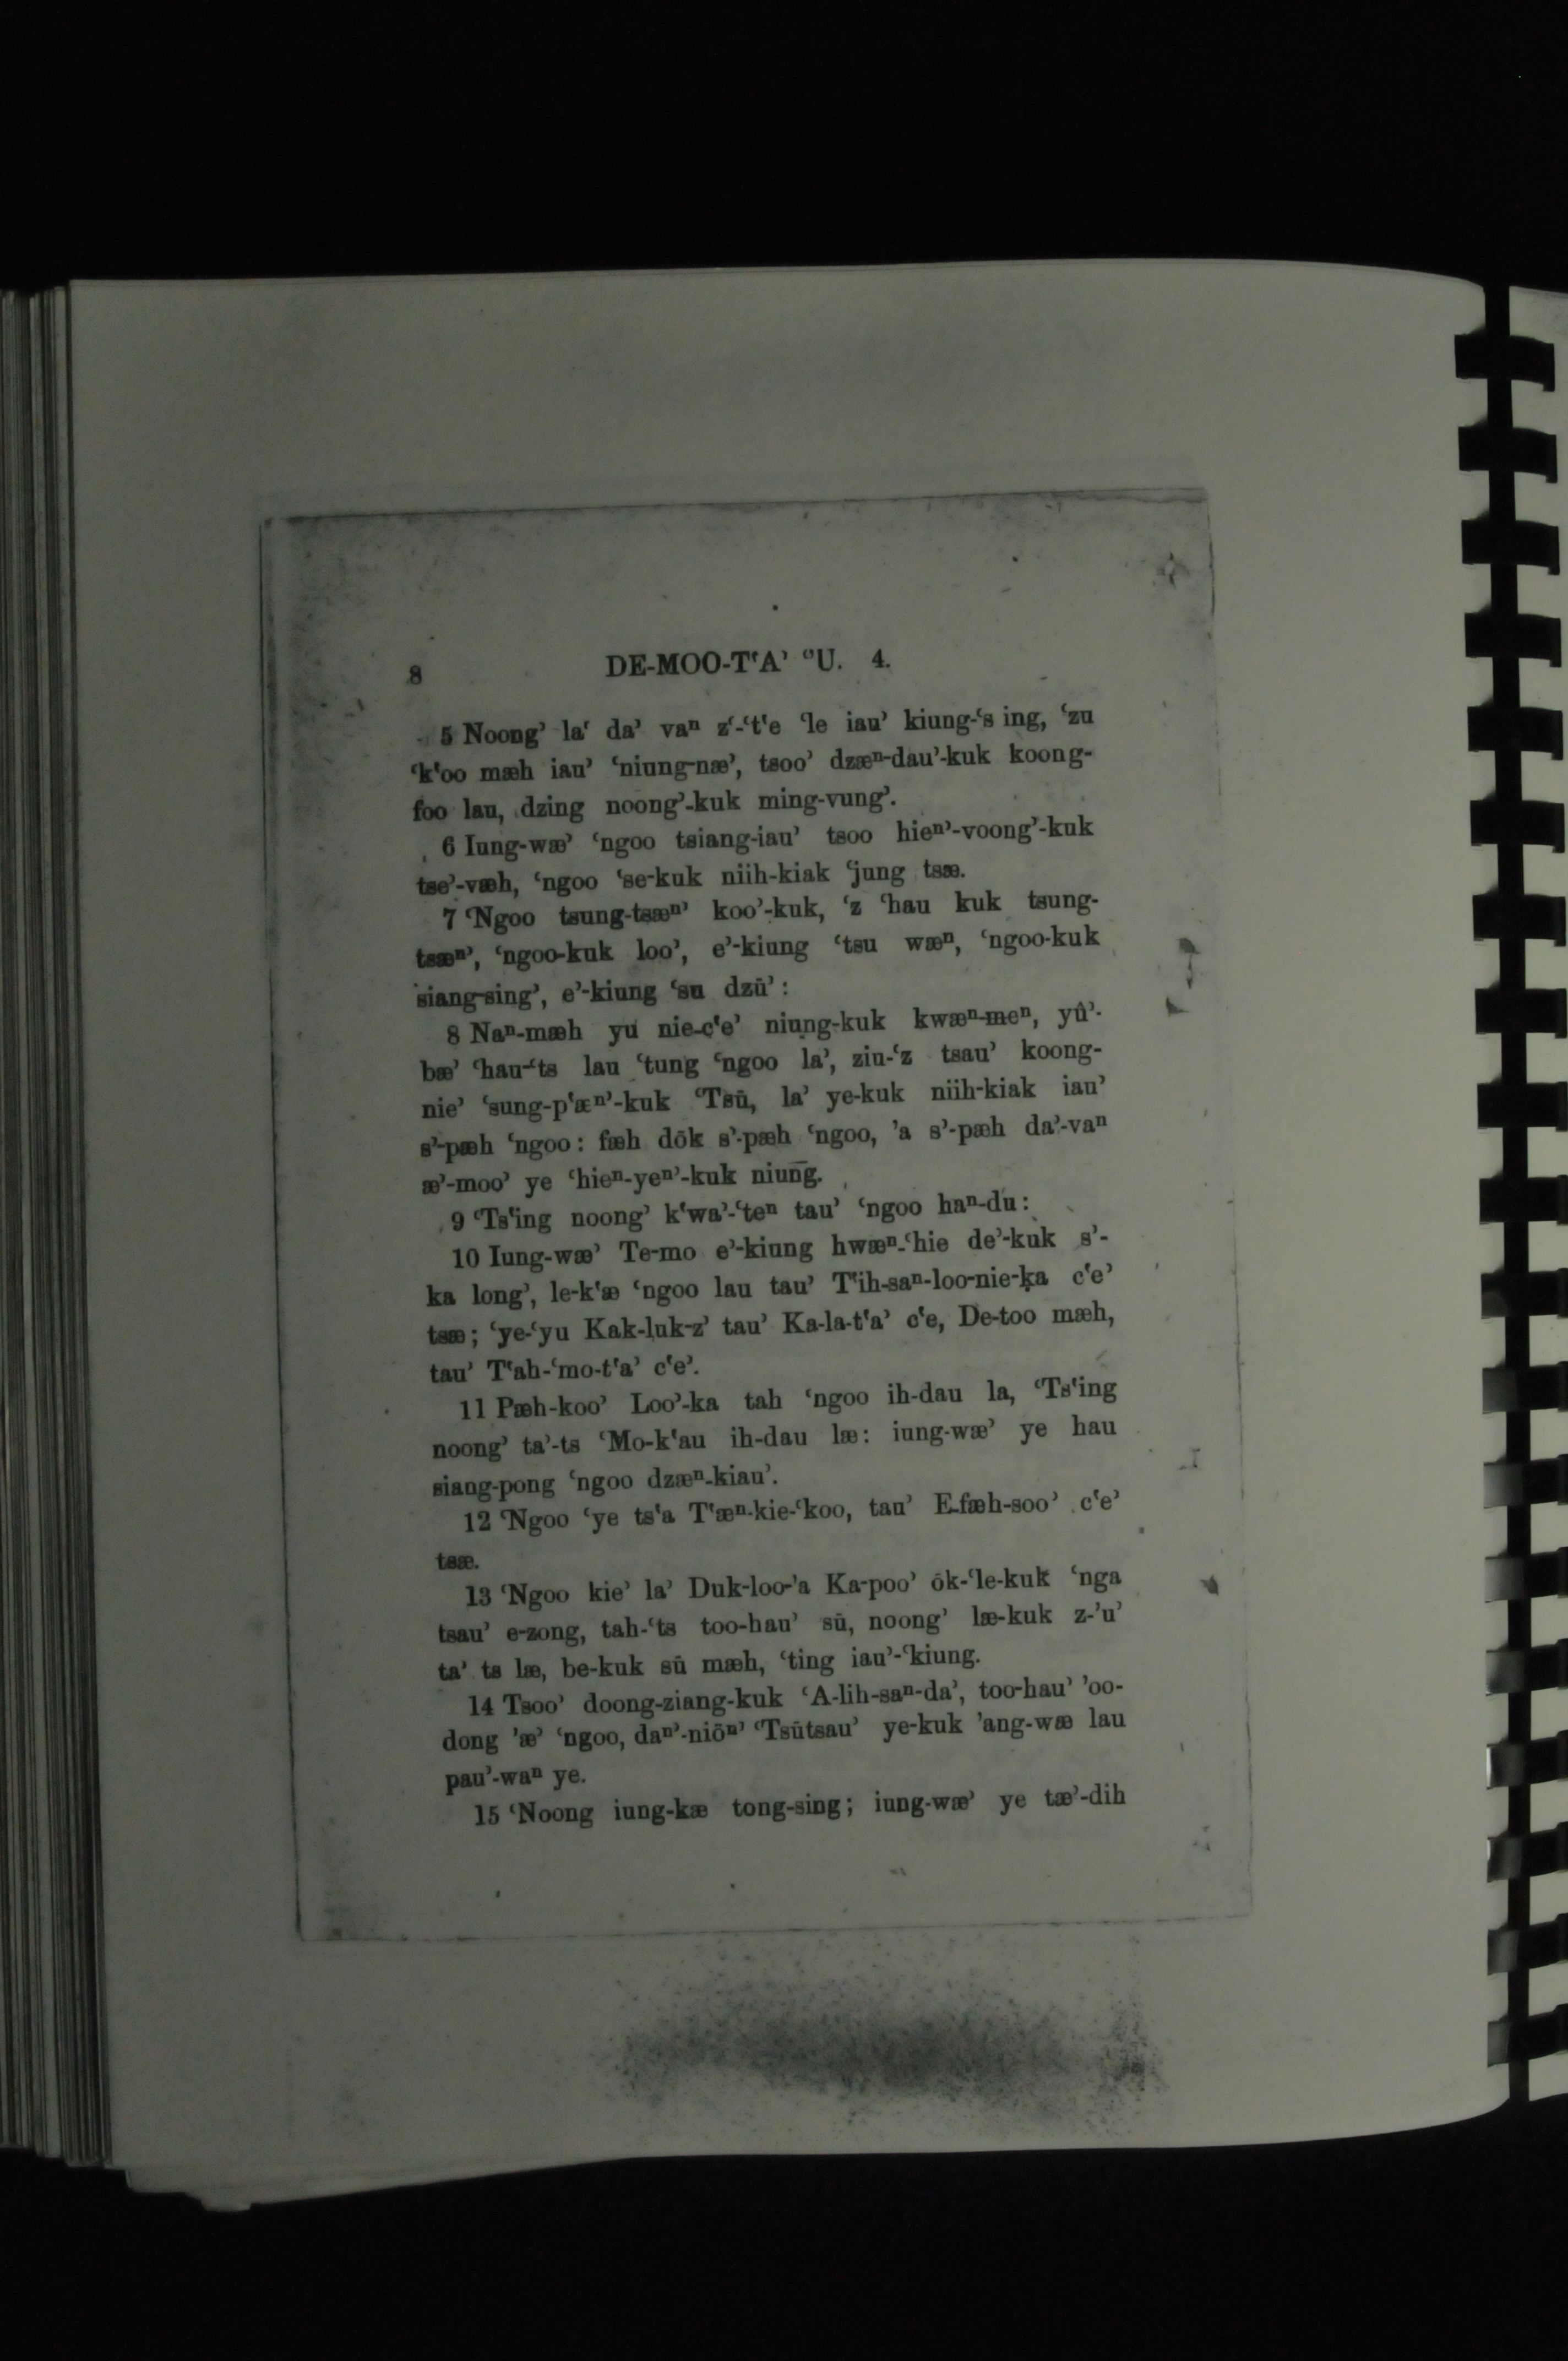 8 DE-MOO-TʽAʼ ʽʼU. 4.
5 Noongʼ laʽ daʼ vaⁿ zʽ-ʽtʽe ʽle iauʼ kiung-ʽs ing, ʽzu
ʽkʽoo mæh iauʼ ʽniung-næʼ, tsooʼ dzæⁿ-dauʼ-kuk koong-
foo lau, dzing noongʼ-kuk ming-vungʼ.
6 Iung-wæʼ ʽngoo tsiang-iauʼ tsoo hieⁿʼ-voongʼ-kuk
tseʼ-væh, ʽngoo ʽse-kuk niih-kiak ʽjung tsæ.
7 ʽNgoo tsung-tsæⁿʼ kooʼ-kuk, ʽz ʽhau kuk tsung-
tsæⁿʼ, ʽngoo-kuk looʼ, eʼ-kiung ʽtsu wæⁿ, ʽngoo-kuk
siang-singʼ, eʼ-kiung ʽsu dzūʼ:
8 Naⁿ-mæh yu nie-cʽeʼ niung-kuk kwæⁿ-meⁿ, yûʼ-
bæʼ ʽhau-ʽts lau ʽtung ʽngoo laʼ, ziu-ʽz tsauʼ koong-
nieʼ ʽsung-pʽæⁿʼ-kuk ʽTsū, laʼ ye-kuk niih-kiak iauʼ
sʼ-pæh ʽngoo: fæh dōk sʼ-pæh ʽngoo, ʼa sʼ-pæh daʼ-vaⁿ
æʼ-mooʼ ye ʽhieⁿ-yeⁿʼ-kuk niung.
9 ʽTsʽing noongʼ kʽwaʼ-ʽteⁿ tauʼ ʽngoo haⁿ-du:
10 Iung-wæʼ Te-mo eʼ-kiung hwæⁿ-ʽhie deʼ-kuk sʼ-
ka longʼ, le-kʽæ ʽngoo lau tauʼ Tʽih-saⁿ-loo-nie-ka cʽeʼ
tsæ; ʽye-ʽyu Kak-luk-zʼ tauʼ Ka-la-tʽaʼ cʽe, De-too mæh,
tauʼ Tʽah-ʽmo-tʽaʼ cʽeʼ.
11 Pæh-kooʼ Looʼ-ka tah ʽngoo ih-dau la, ʽTsʽing
noongʼ taʼ-ts ʽMo-kʽau ih-dau læ: iung-wæʼ ye hau
siang-pong ʽngoo dzæⁿ-kiauʼ.
12 ʽNgoo ʽye tsʽa Tʽæⁿ-kie-ʽkoo, tauʼ E-fæh-sooʼ cʽeʼ
tsæ.
13 ʽNgoo kieʼ laʼ Duk-loo-ʼa Ka-pooʼ ōk-ʽle-kuk ʽnga
tsauʼ e-zong, tah-ʽts too-hauʼ sū, noongʼ læ-kuk z-ʼuʼ
taʼ ts læ, be-kuk sū mæh, ʽting iauʼ-ʽkiung.
14 Tsooʼ doong-ziang-kuk ʽA-lih-saⁿ-daʼ, too-hauʼ ʼoo-
dong ʼæʼ ʽngoo, daⁿʼ-niōⁿʼ ʽTsūtsauʼ ye-kuk ʼang-wæ lau
pauʼ-waⁿ ye.
15 ʽNoong iung-kæ tong-sing; iung-wæʼ ye tæʼ-dih